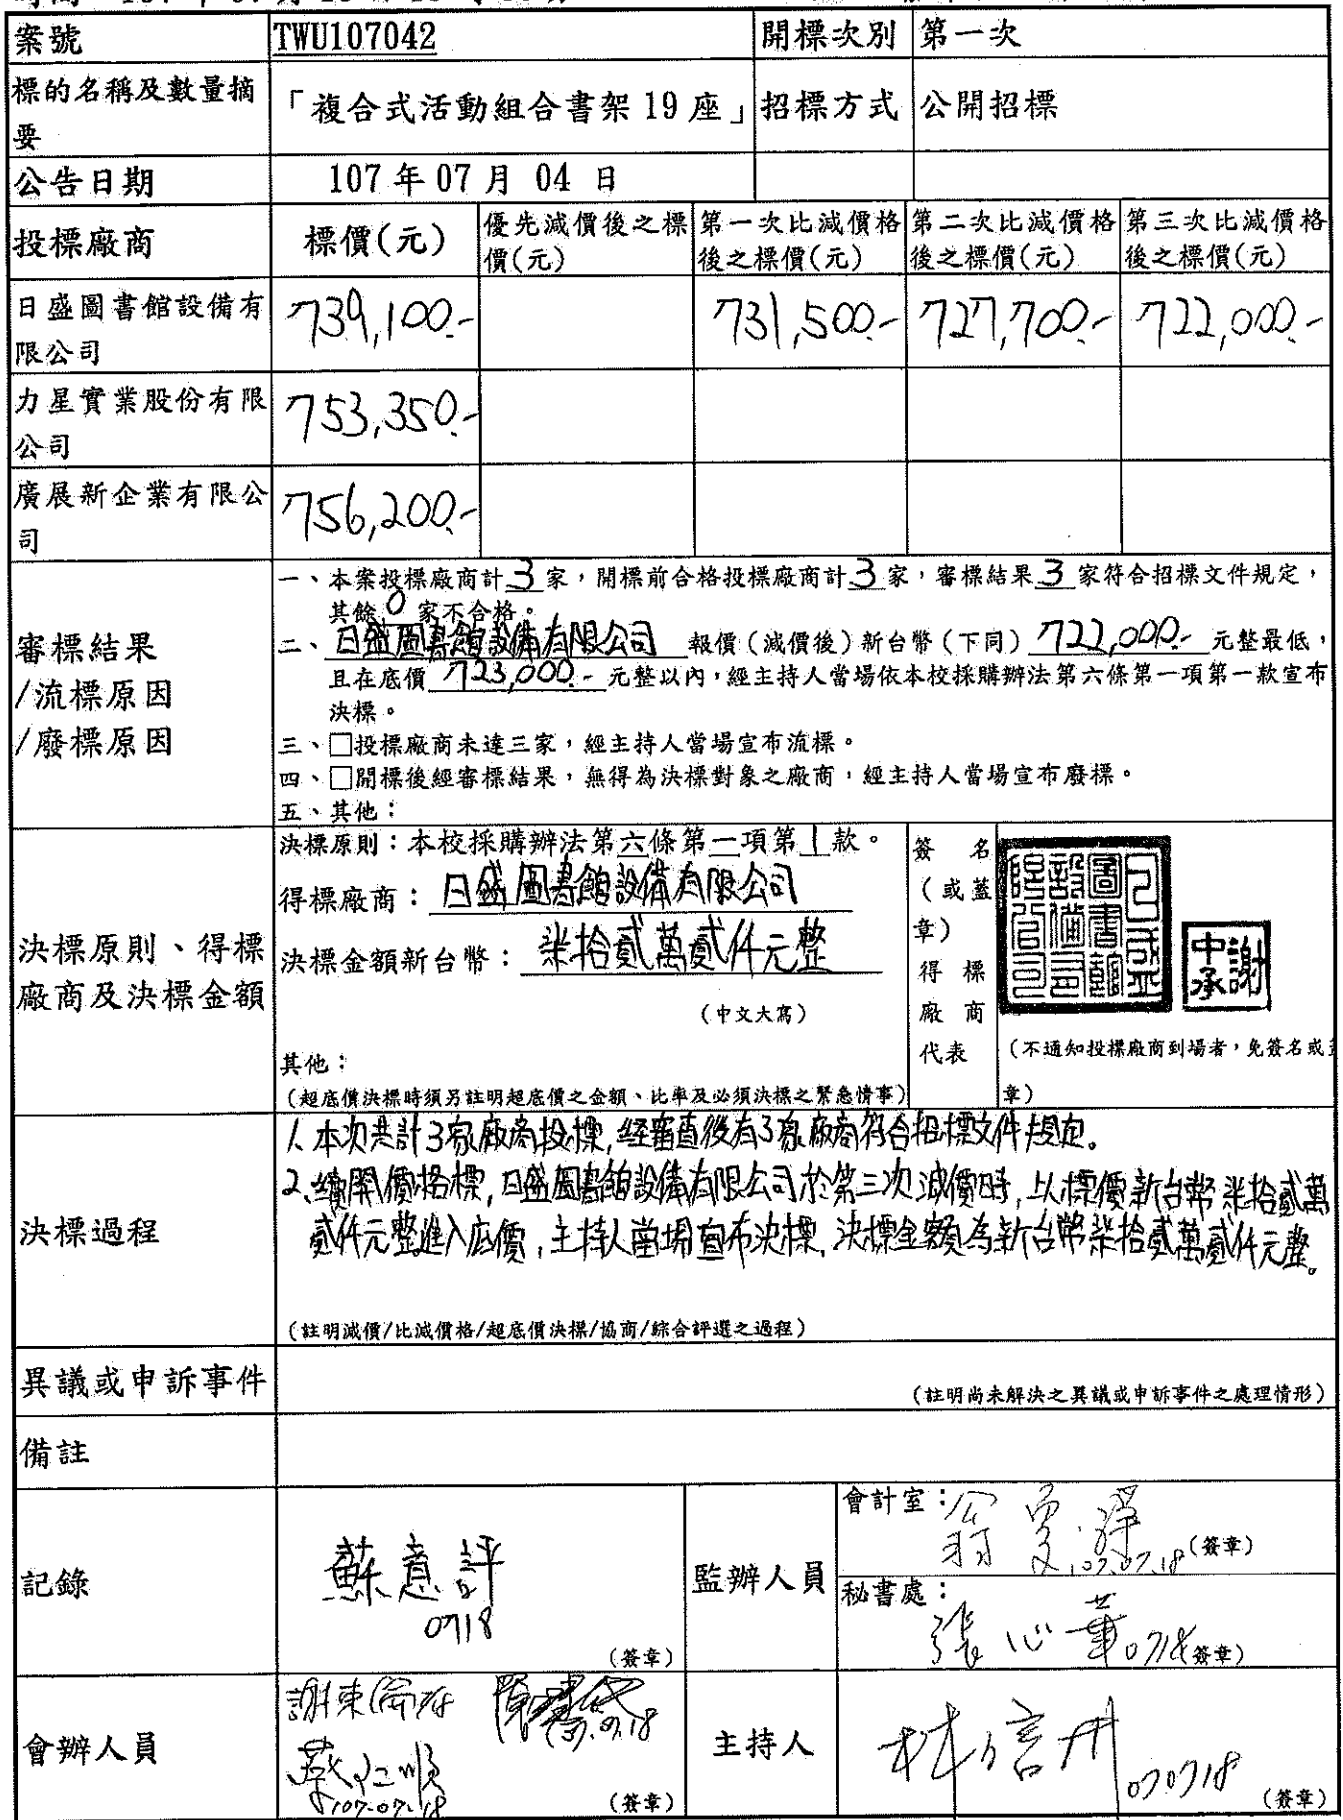 案號 TWU107042 開標次別 第一次
標的名稱及數量摘
要
「複合式活動組合書架 19 座」 招標方式 公開招標
公告日期 107 年 07 月 04 日
投標廠商 標價(元)
優先減價後之標
價(元)
第一次比減價格
後之標價(元)
第二次比減價格
後之標價(元)
第三次比減價格
後之標價(元)
日盛圖書館設備有
限公司
739,100.- 731,500.- 727,700.- 722,000.-
力星實業股份有限
公司
753,350.-
廣展新企業有限公
司
756,200.-
審標結果
/流標原因
/廢標原因
一、本案投標廠商計 3 家，開標前合格投標廠商計 3 家，審標結果 3 家符合招標文件規定，
其餘 0 家不合格。
二、日盛圖書館設備有限公司 報價(減價後)新台幣(下同) 722,000.- 元整最低，
且在底價 723,000.- 元整以內，經主持人當場依本校採購辦法第六條第一項第一款宣布
決標。
三、□投標廠商未達三家，經主持人當場宣布流標。
四、□開標後經審標結果，無得為決標對象之廠商，經主持人當場宣布廢標。
五、其他：
決標原則、得標
廠商及決標金額
決標原則：本校採購辦法第六條第一項第1款。
得標廠商：日盛圖書館設備有限公司
決標金額新台幣：柒拾貳萬貳仟元整
(中文大寫)
其他：
(超底價決標時須另註明超底價之金額、比率及必須決標之緊急情事)
簽 名
(或蓋
章)
得 標
廠 商
代表
謝
中承
(不通知投標廠商到場者，免簽名或
章)
決標過程
1. 本次共計3家廠商投標, 經審查後有3家廠商符合招標文件規定。
2. 續開價格標, 日盛圖書館設備有限公司於第三次減價時, 以標價新台幣柒拾貳萬
貳仟元整進入底價, 主持人當場宣布決標, 決標金額為新台幣柒拾貳萬貳仟元整。
(註明減價/比減價格/超底價決標/協商/綜合評選之過程)
異議或申訴事件
(註明尚未解決之異議或申訴事件之處理情形)
備註
記錄
蘇意評
0718
(簽章)
監辦人員
會計室：
107.07.18 (簽章)
秘書處：
張心華 0718 簽章)
會辦人員
謝東倫
107.07.18
蔡仁順
107.07.18
(簽章)
主持人
林信州
070718
(簽章)